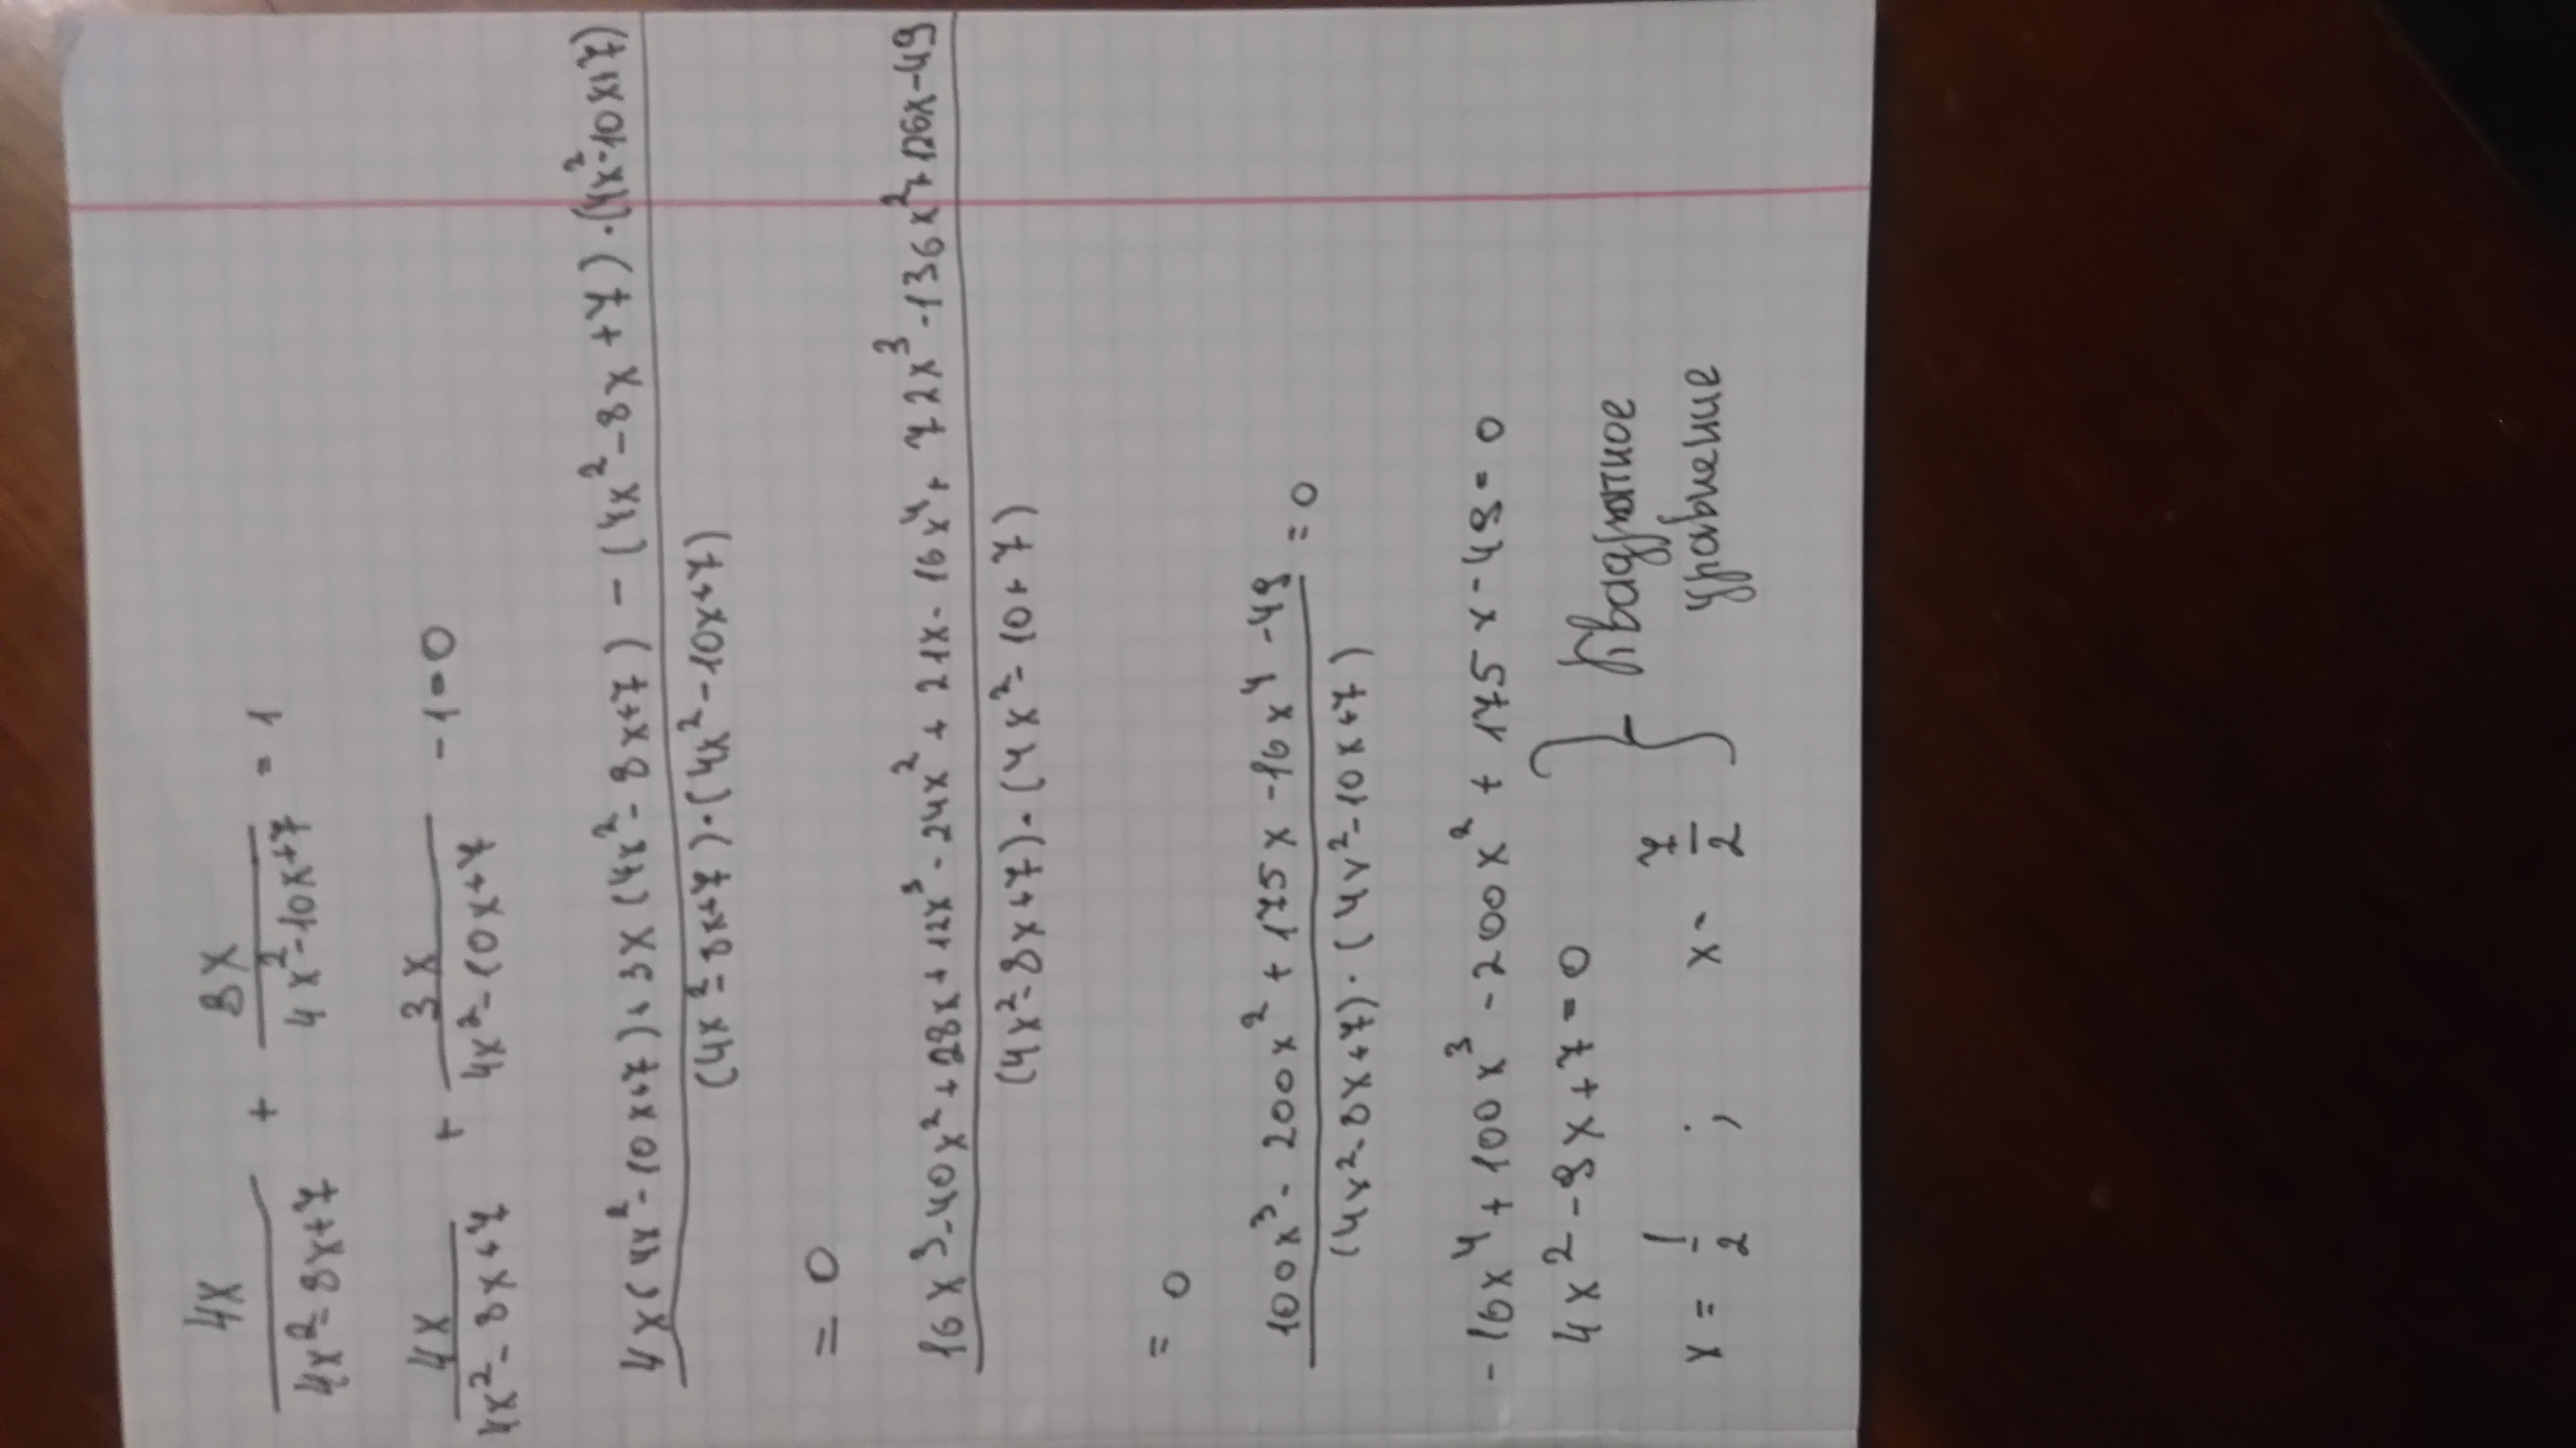 4x/(4x² - 8x+7) + 8x/(4x² - 10x+7) = 1
4x/(4x² - 8x+7) + 3x/(4x² - 10x+7) - 1 = 0
4x(4x² - 10x+7)+3x(4x² - 8x+7) - (4x² - 8x+7)·(4x² - 10x+7)
(4x² - 8x+7)·(4x² - 10x+7)
= 0
16x³ - 40x² + 28x + 12x³ - 24x² + 21x - 16x⁴ + 72x³ - 136x² + 126x - 49
(4x² - 8x+7)·(4x² - 10+7)
= 0
100x³ - 200x² + 175x - 16x⁴ - 49 = 0
(4x² - 8x+7)·(4x² - 10x+7)
-16x⁴ + 100x³ - 200x² + 175x - 49 = 0
4x² - 8x + 7 = 0 } Квадратное
x = 1/2 ; x = 7/2 уравнение